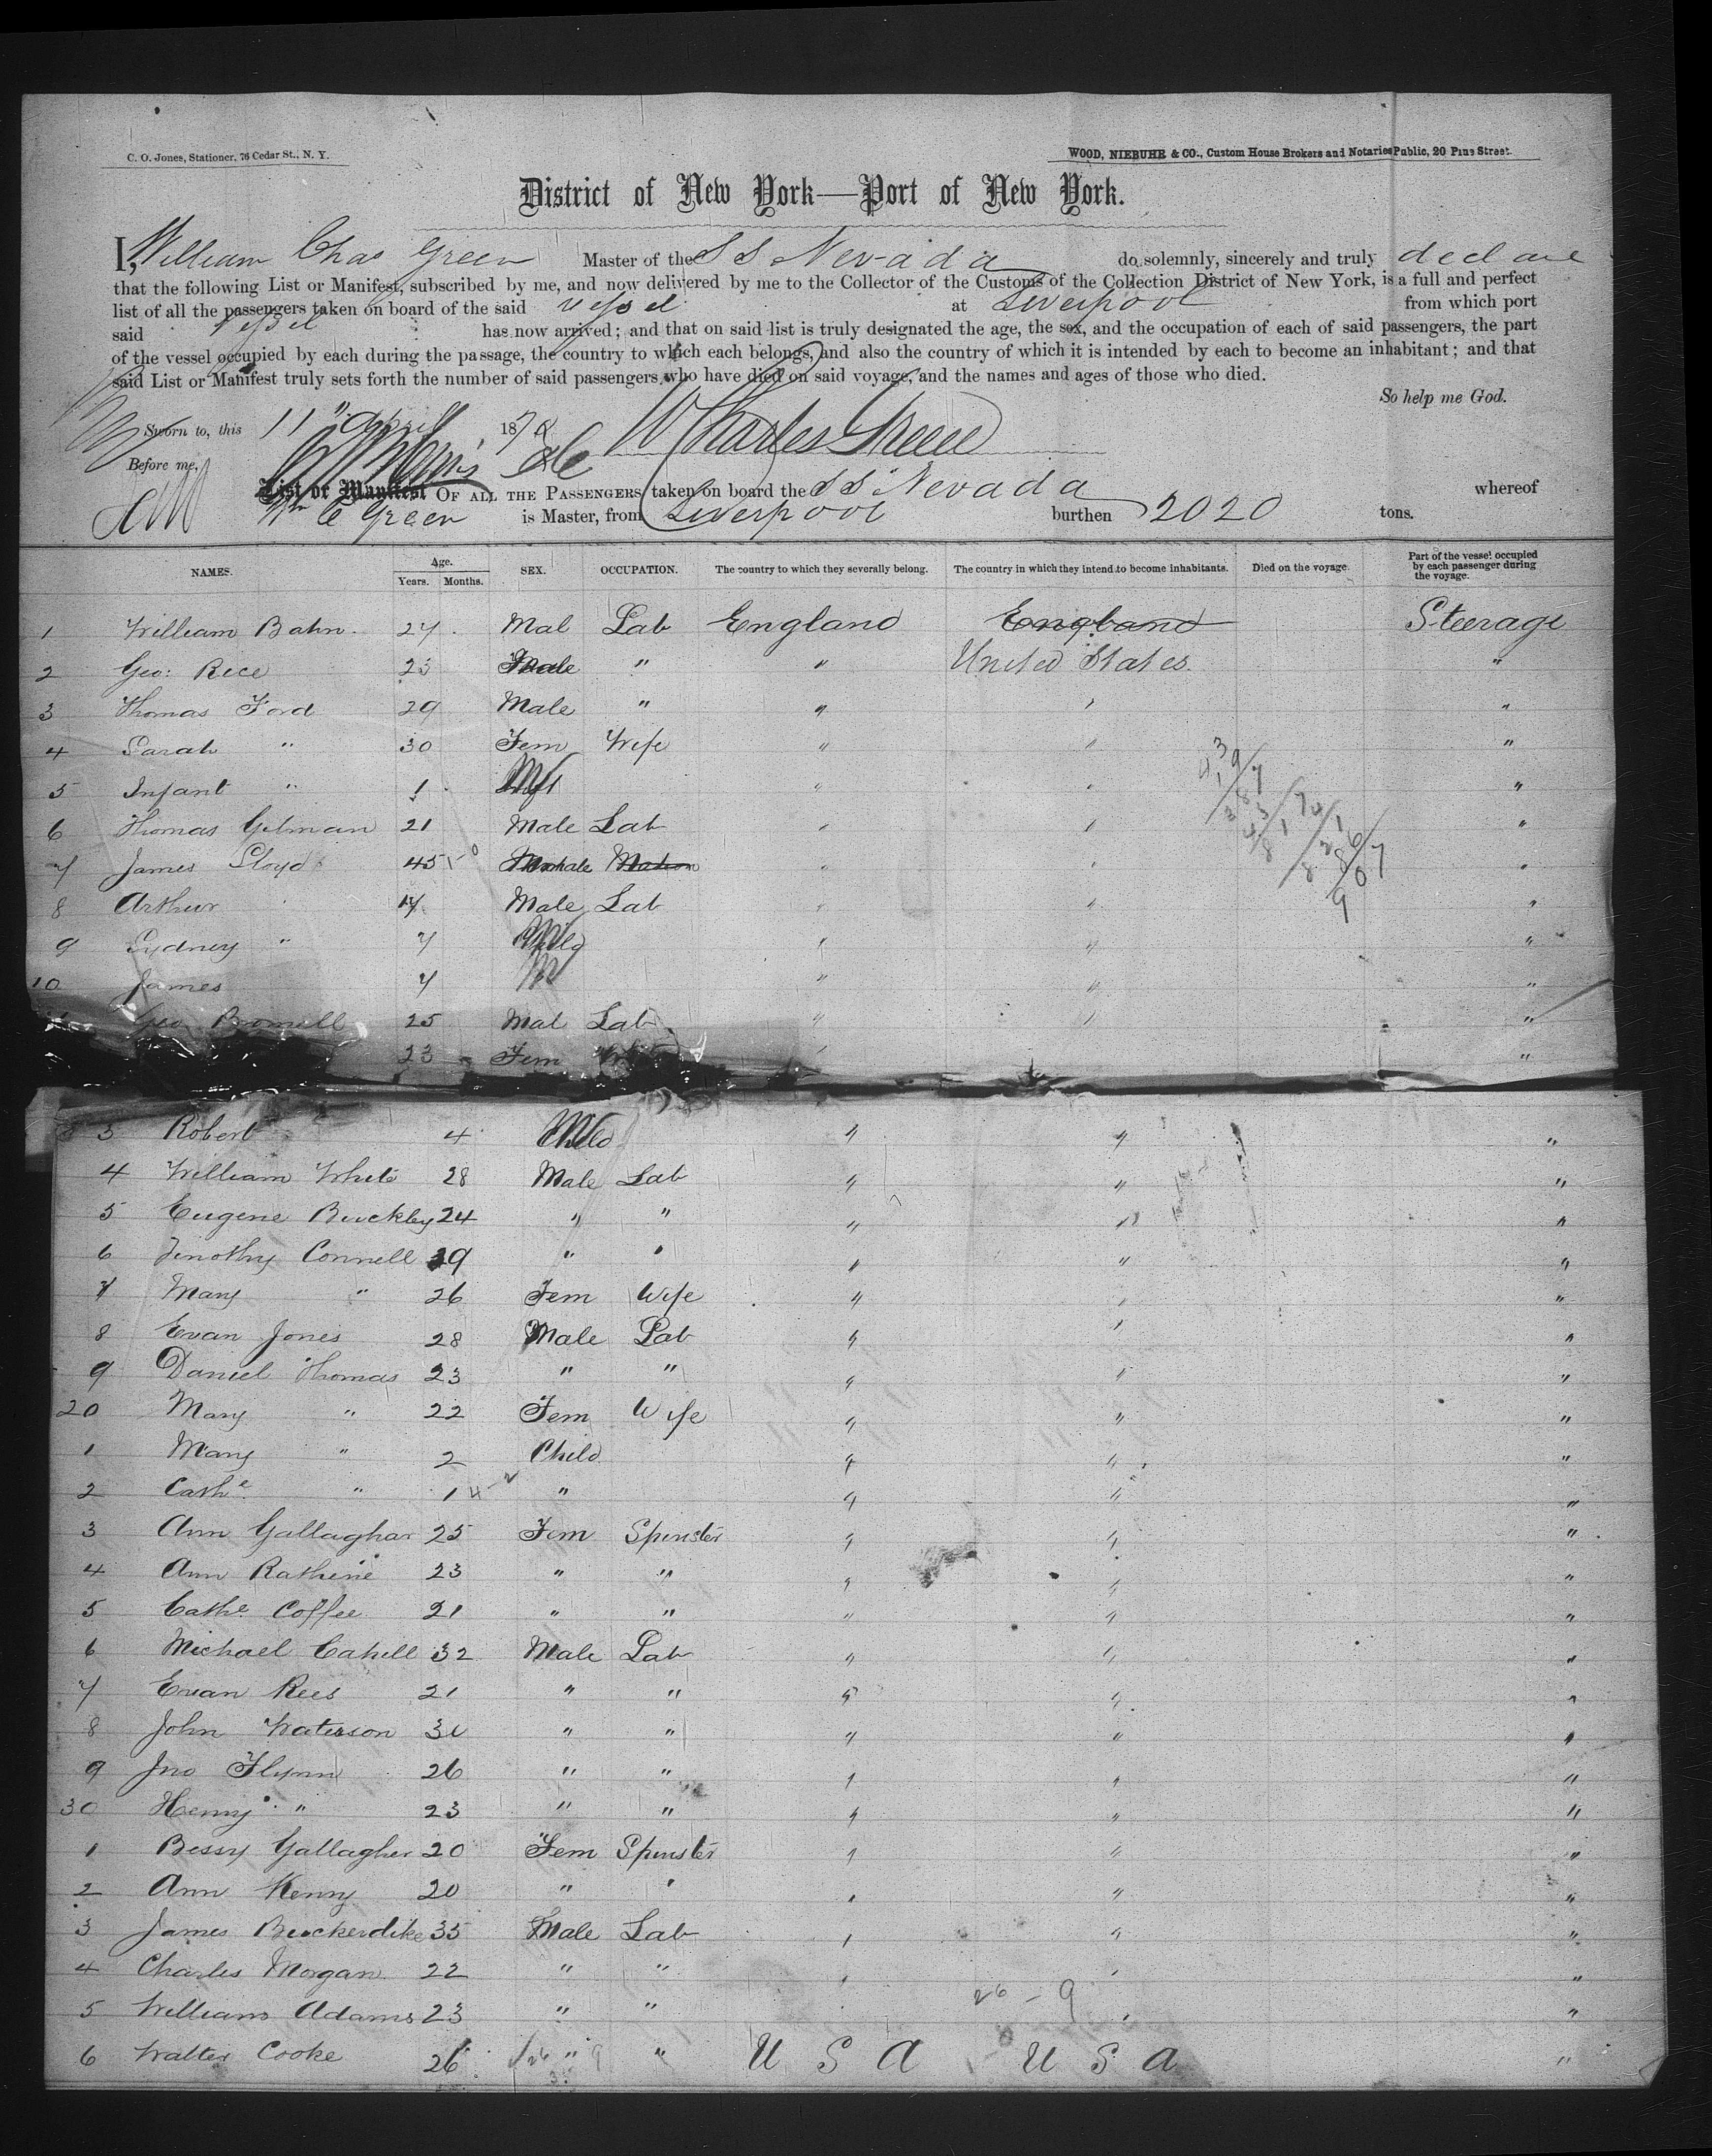 C. O. Jones, Stationer, 76 Cedar St., N. Y.
WOOD, NIEBUHR & CO., Custom House Brokers and Notaries Public, 20 Pine Street.
District of New York—Port of New York.
I, William Chas Green Master of the S S Nevada do solemnly, sincerely and truly declare
that the following List or Manifest, subscribed by me, and now delivered by me to the Collector of the Customs of the Collection District of New York, is a full and perfect
list of all the passengers taken on board of the said vessel at Liverpool from which port
said vessel has now arrived; and that on said list is truly designated the age, the sex, and the occupation of each of said passengers, the part
of the vessel occupied by each during the passage, the country to which each belongs, and also the country of which it is intended by each to become an inhabitant; and that
said List or Manifest truly sets forth the number of said passengers who have died on said voyage, and the names and ages of those who died.
So help me God.
Sworn to, this 11" April 187
W Charles Green
Before me,
List or Manifest OF ALL THE PASSENGERS taken on board the S S Nevada whereof
Wm C Green is Master, from Liverpool burthen 2020 tons.
NAMES. Age. Years. Months. SEX. OCCUPATION. The country to which they severally belong. The country in which they intend to become inhabitants. Died on the voyage. Part of the vessel occupied by each passenger during the voyage.
1 William Bahn 27 Mal Lab England England Steerage
2 Geo: Rice 23 Male " " United States "
3 Thomas Ford 29 Male " " " "
4 Sarah " 30 Fem Wife " " "
5 Infant " 1 " " "
6 Thomas Gilman 21 Male Lab " " "
7 James Lloyd 45 " " "
8 Arthur 17 Male Lab " " "
9 Sydney " 7 Child " " "
10 James 7 M " " "
Geo Bromell 25 Mal Lab " " "
23 Fem " " "
3 Robert " 4 Child " " "
4 William White 28 Male Lab " " "
5 Eugene Buckley 24 " " " " "
6 Timothy Connell 29 " " " " "
7 Mary " 26 Fem Wife " " "
8 Evan Jones 28 Male Lab " " "
9 Daniel Thomas 23 " " " " "
20 Mary " 22 Fem Wife " " "
1 Mary " 2 Child " " "
2 Cathe " 1 " " " "
3 Ann Gallaghar 25 Fem Spinster " " "
4 Ann Rathine 23 " " " " "
5 Cathe Coffee 21 " " " " "
6 Michael Cahill 32 Male Lab " " "
7 Evan Rees 21 " " " " "
8 John Waterson 30 " " " " "
9 Jno Flynn 26 " " " " "
30 Henry " 23 " " " " "
1 Bessy Gallagher 20 Fem Spinster " " "
2 Ann Kenny 20 " " " " "
3 James Buckerdike 35 Male Lab " " "
4 Charles Morgan 22 " " " " "
5 William Adams 23 " " " "
26 - 9
6 Walter Cooke 26 " " U S A U S A "